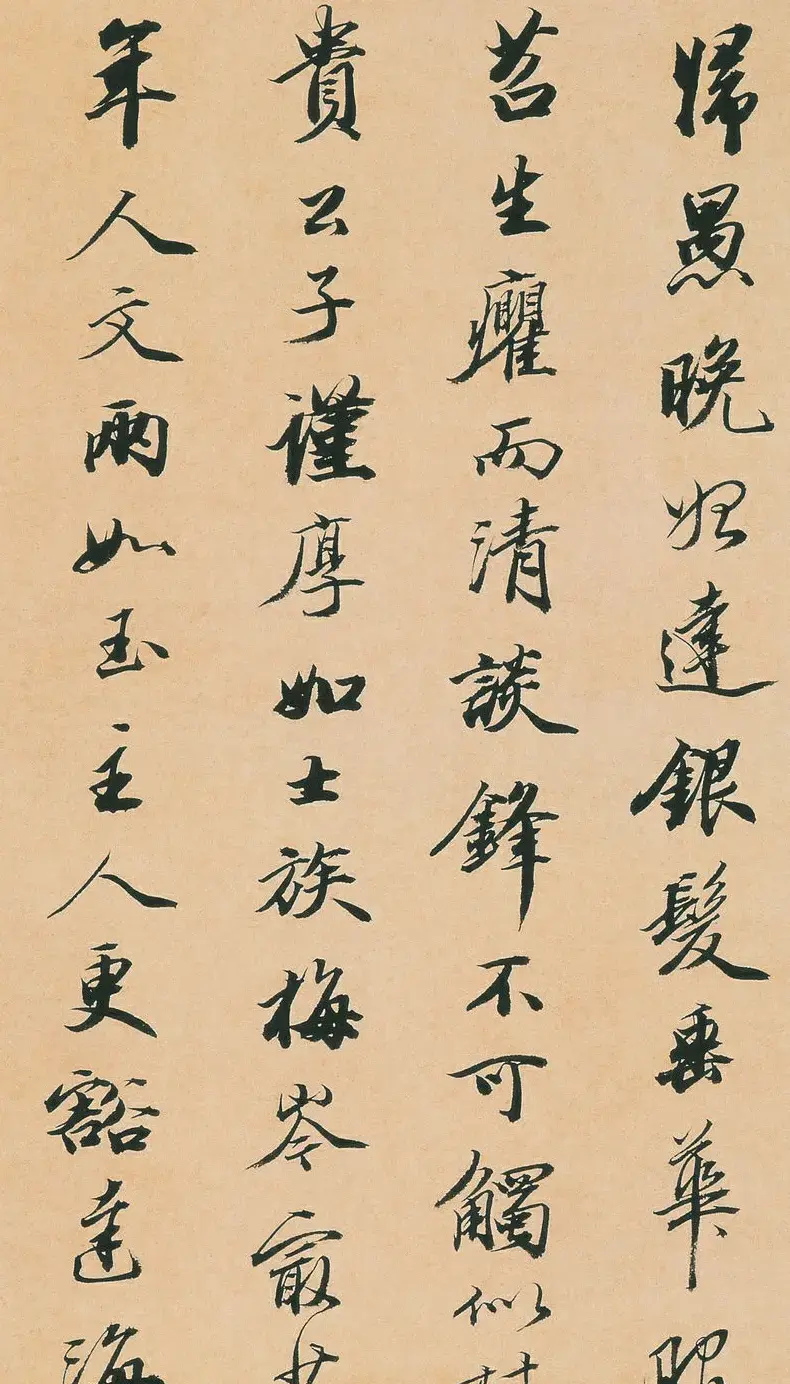 歸愚晚始達銀髮垂華照
苕生癯而清談鋒不可觸似
貴公子謹厚如士族梅岑最
年人文兩如玉主人更豁達海